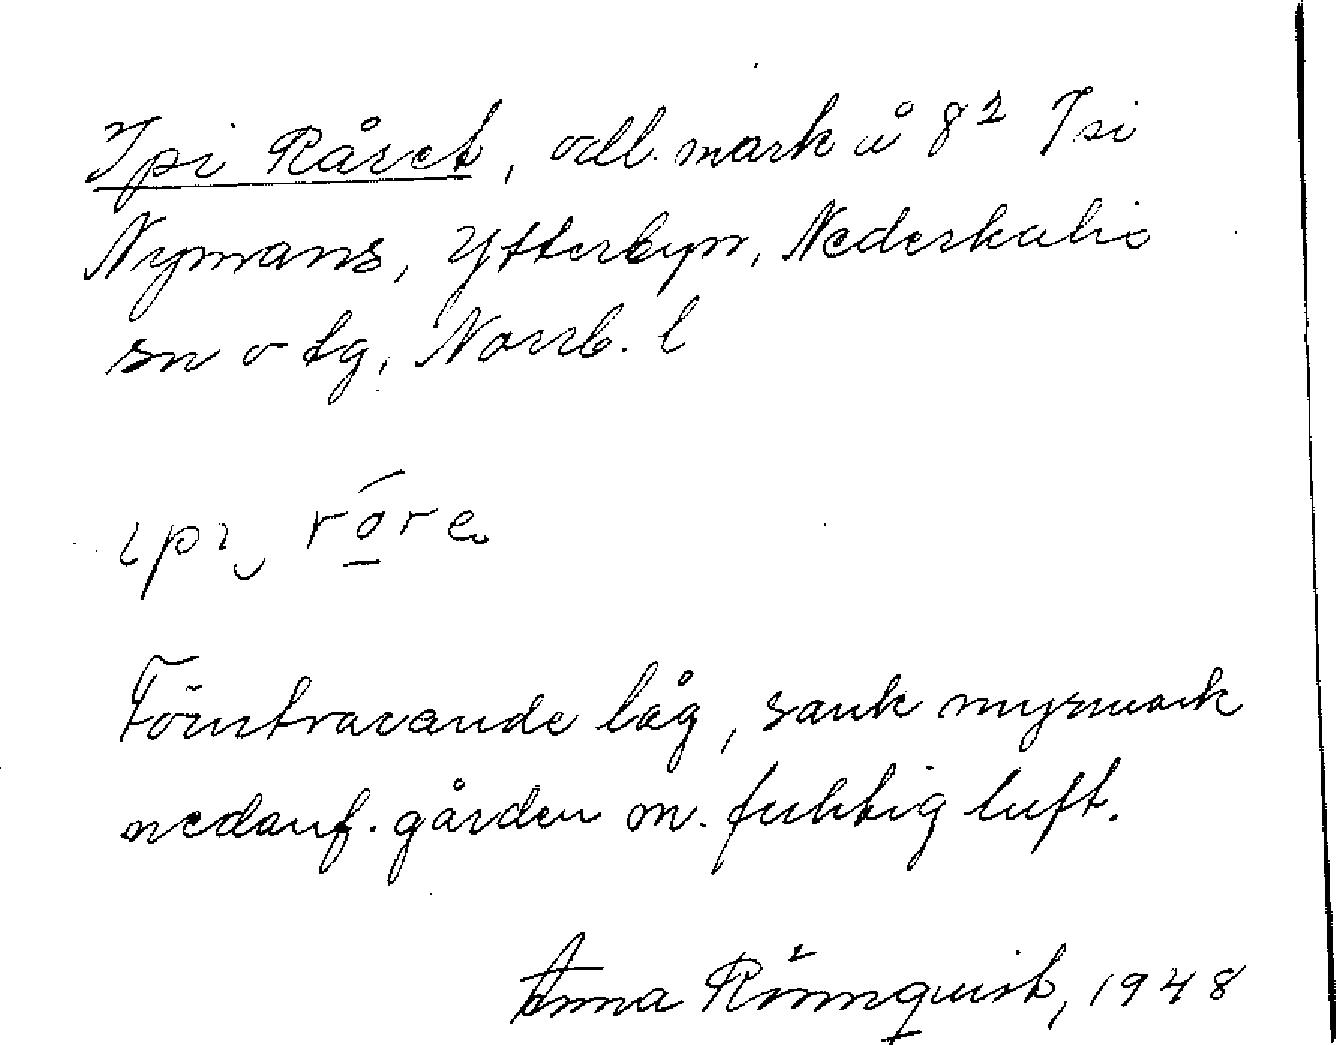 Ipi Råret, odl. mark å 8² Isi
Nymans, Ytterbyn, Nederkalix
sn o tg, Norrb. l
ipi róre
Förutvarande låg, sank myrmark
nedanf. gården m. fuktig luft.
Anna Rönnquist, 1948